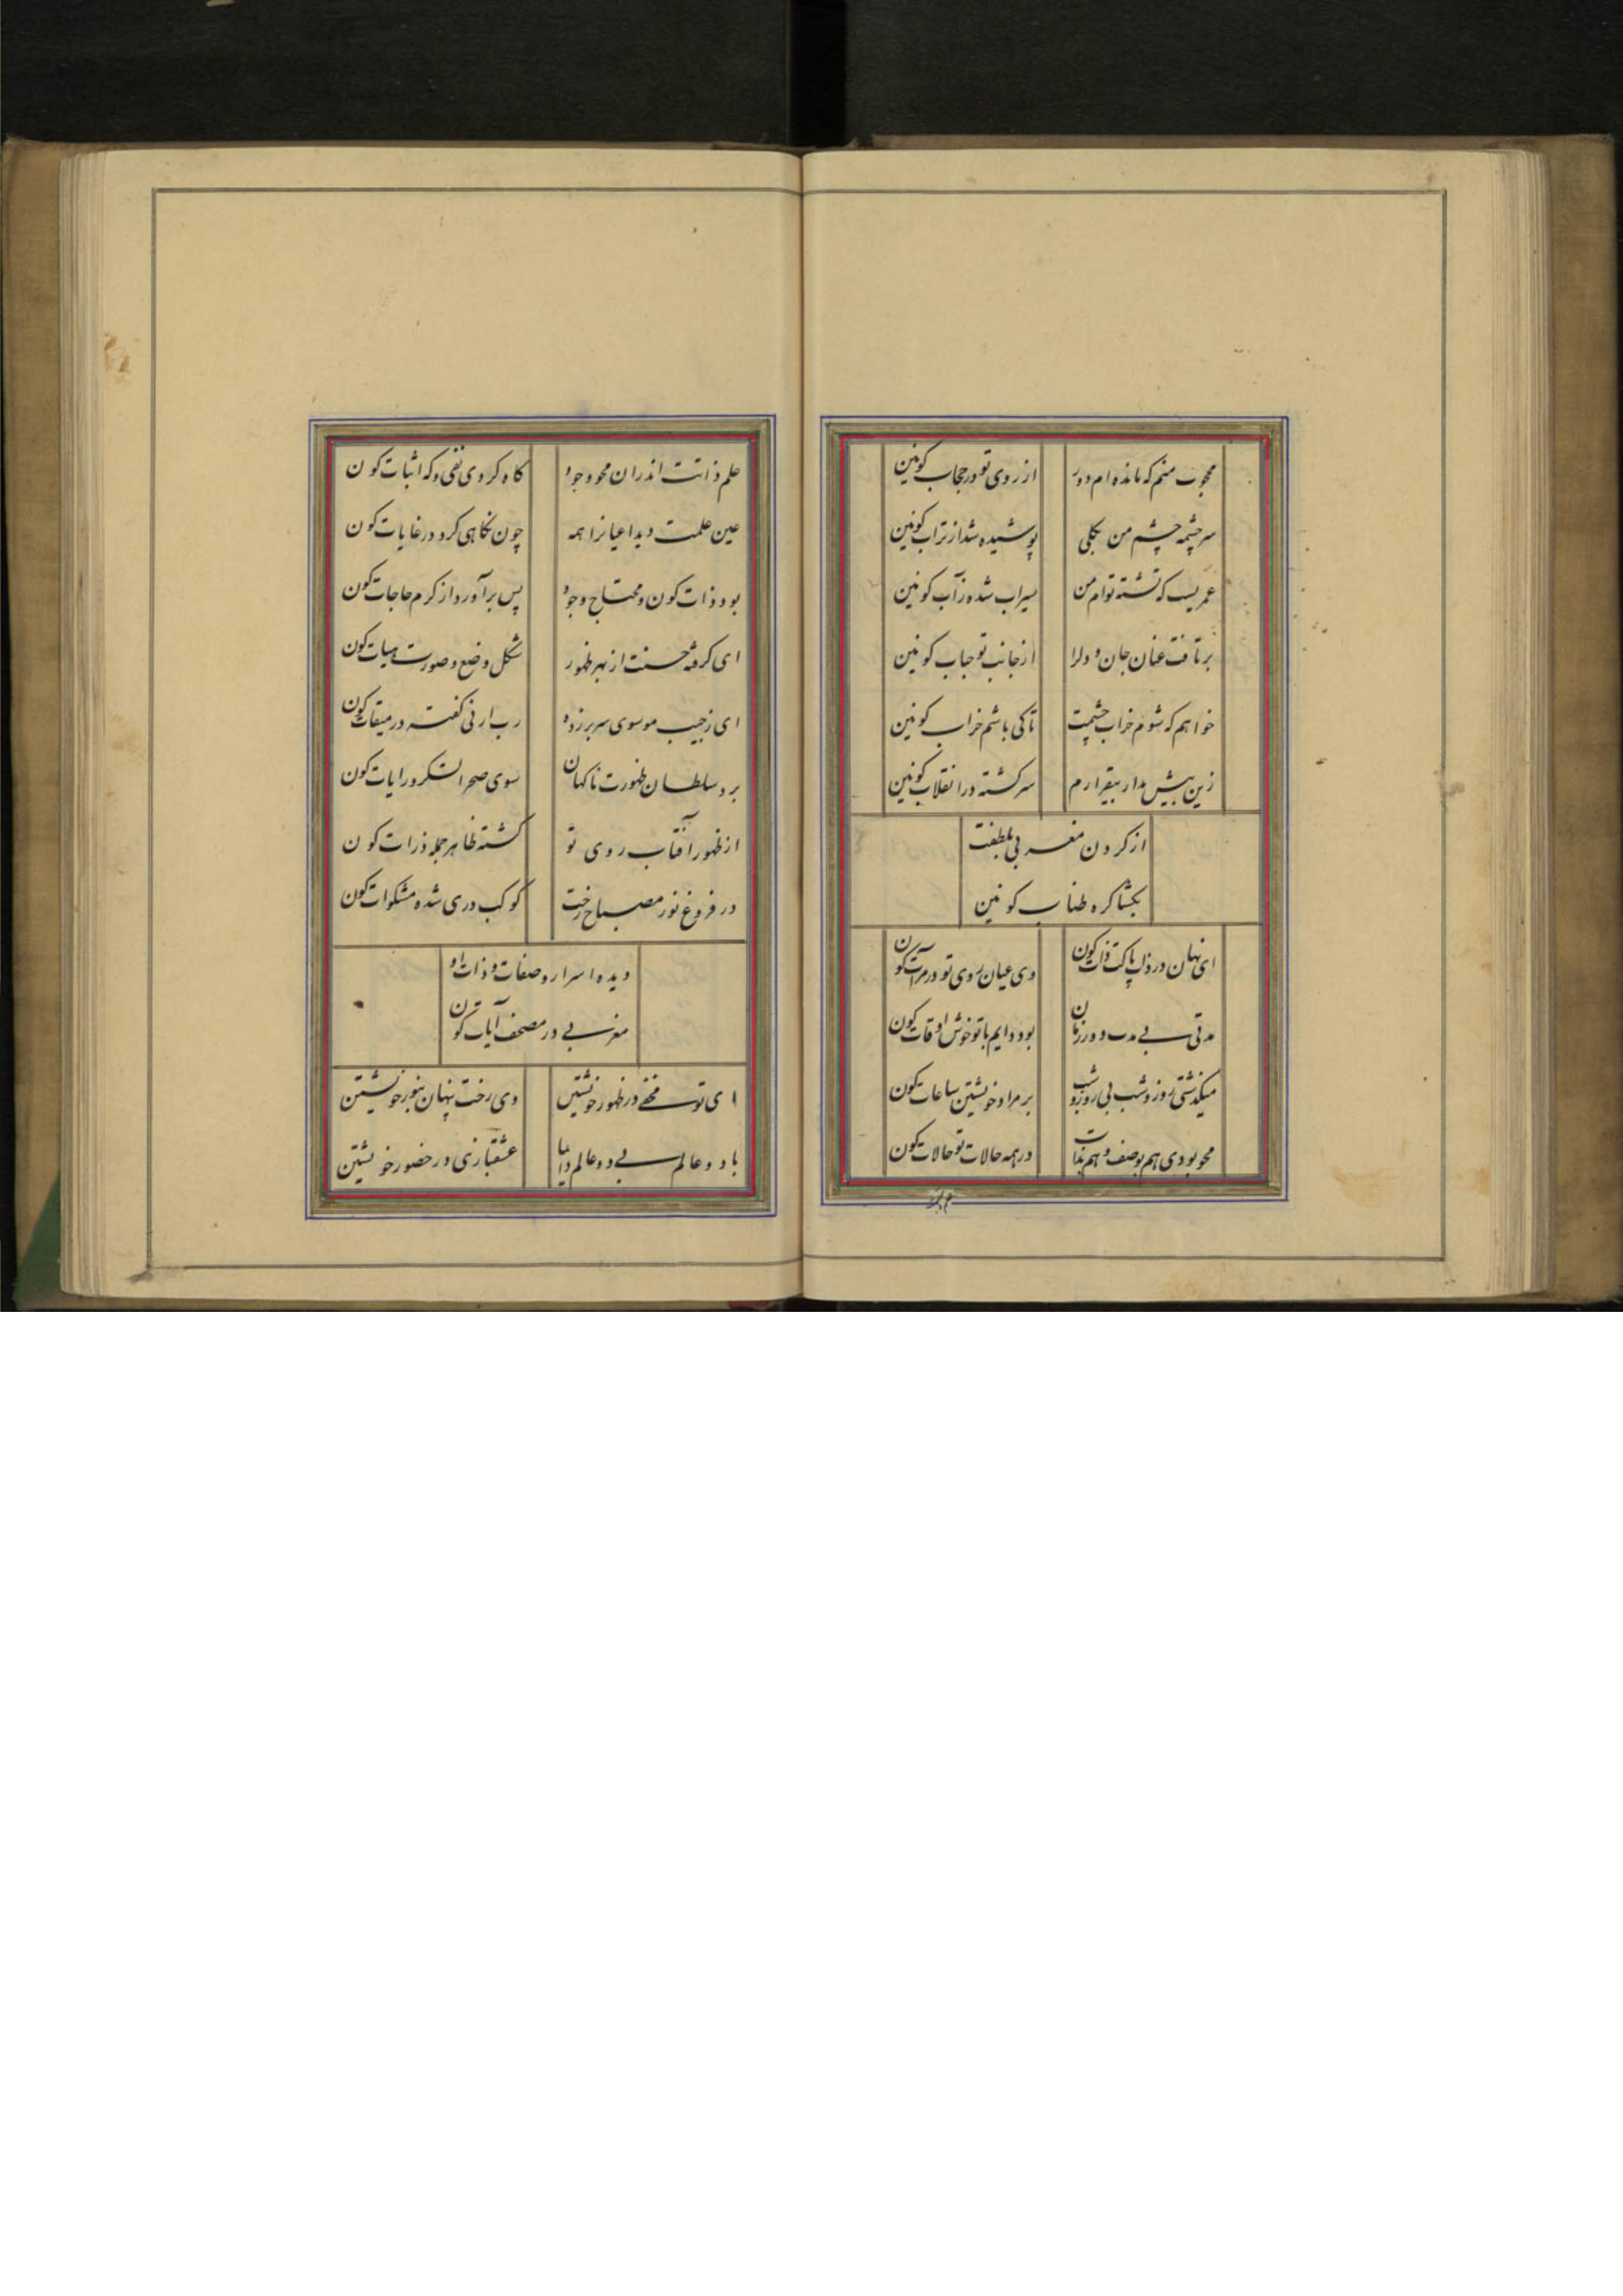 محجوب منم که مانده ام دور از روی تو در حجاب کونین
سرچشمه چشم من بکلی پوشیده شد از تراب کونین
عمریست که تشنه توام من سیراب شده ز آب کونین
برتافت عنان جان و دلرا از جانب تو جناب کونین
خواهم که شوم خراب چشمت تاکی باشم خراب کونین
زین بیش مدار بیقرارم سرکشته در انقلاب کونین
از کردن مغربی بلطفت
بکشا کره طناب کونین
ای نهان در ذات پاکت ذات کون وی عیان روی تو در مرآت کون
مدتی بی مدت و دور زمان بود دایم با تو خوش اوقات کون
میکذشتی روز و شب بی روز و شب بر مراد خویشتن ساعات کون
محو بودی هم بوصف و هم بذات در همه حالات تو حالات کون
علم ذاتت اندران محو وجود کاه کردی نفی و که اثبات کون
عین علمت دید اعیانرا همه چون نکاهی کرد در غایات کون
بود ذات کون و محتاج وجود پس برآورد از کرم حاجات کون
ای کرفته حسنت از بهر ظهور شکل و ضع و صورت و هیات کون
ای ز جیب موسوی سر برزده رب ارنی کفته در میقات کون
برد سلطان ظهورت ناکهان سوی صحرا لشکر و رایات کون
از ظهور آفتاب روی تو کشته ظاهر جمله ذرات کون
در فروغ نور مصباح رخت کوکب دری شده مشکوات کون
دیده اسرار و صفات و ذات او
مغربی در مصحف آیات کون
ای تو مخفی در ظهور خویشتن وی رخت پنهان بنور خویشتن
با دو عالم بی دو عالم دایما عشقبازی در حضور خویشتن